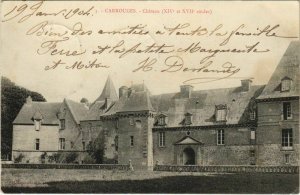 19 Janv. 1904
1. - CARROUGES. - Château (XIVe et XVIIe siècles)
Bien des amitiés à toute la famille
Pierre et la petite Marguerite
et Miton
H. Deslandes